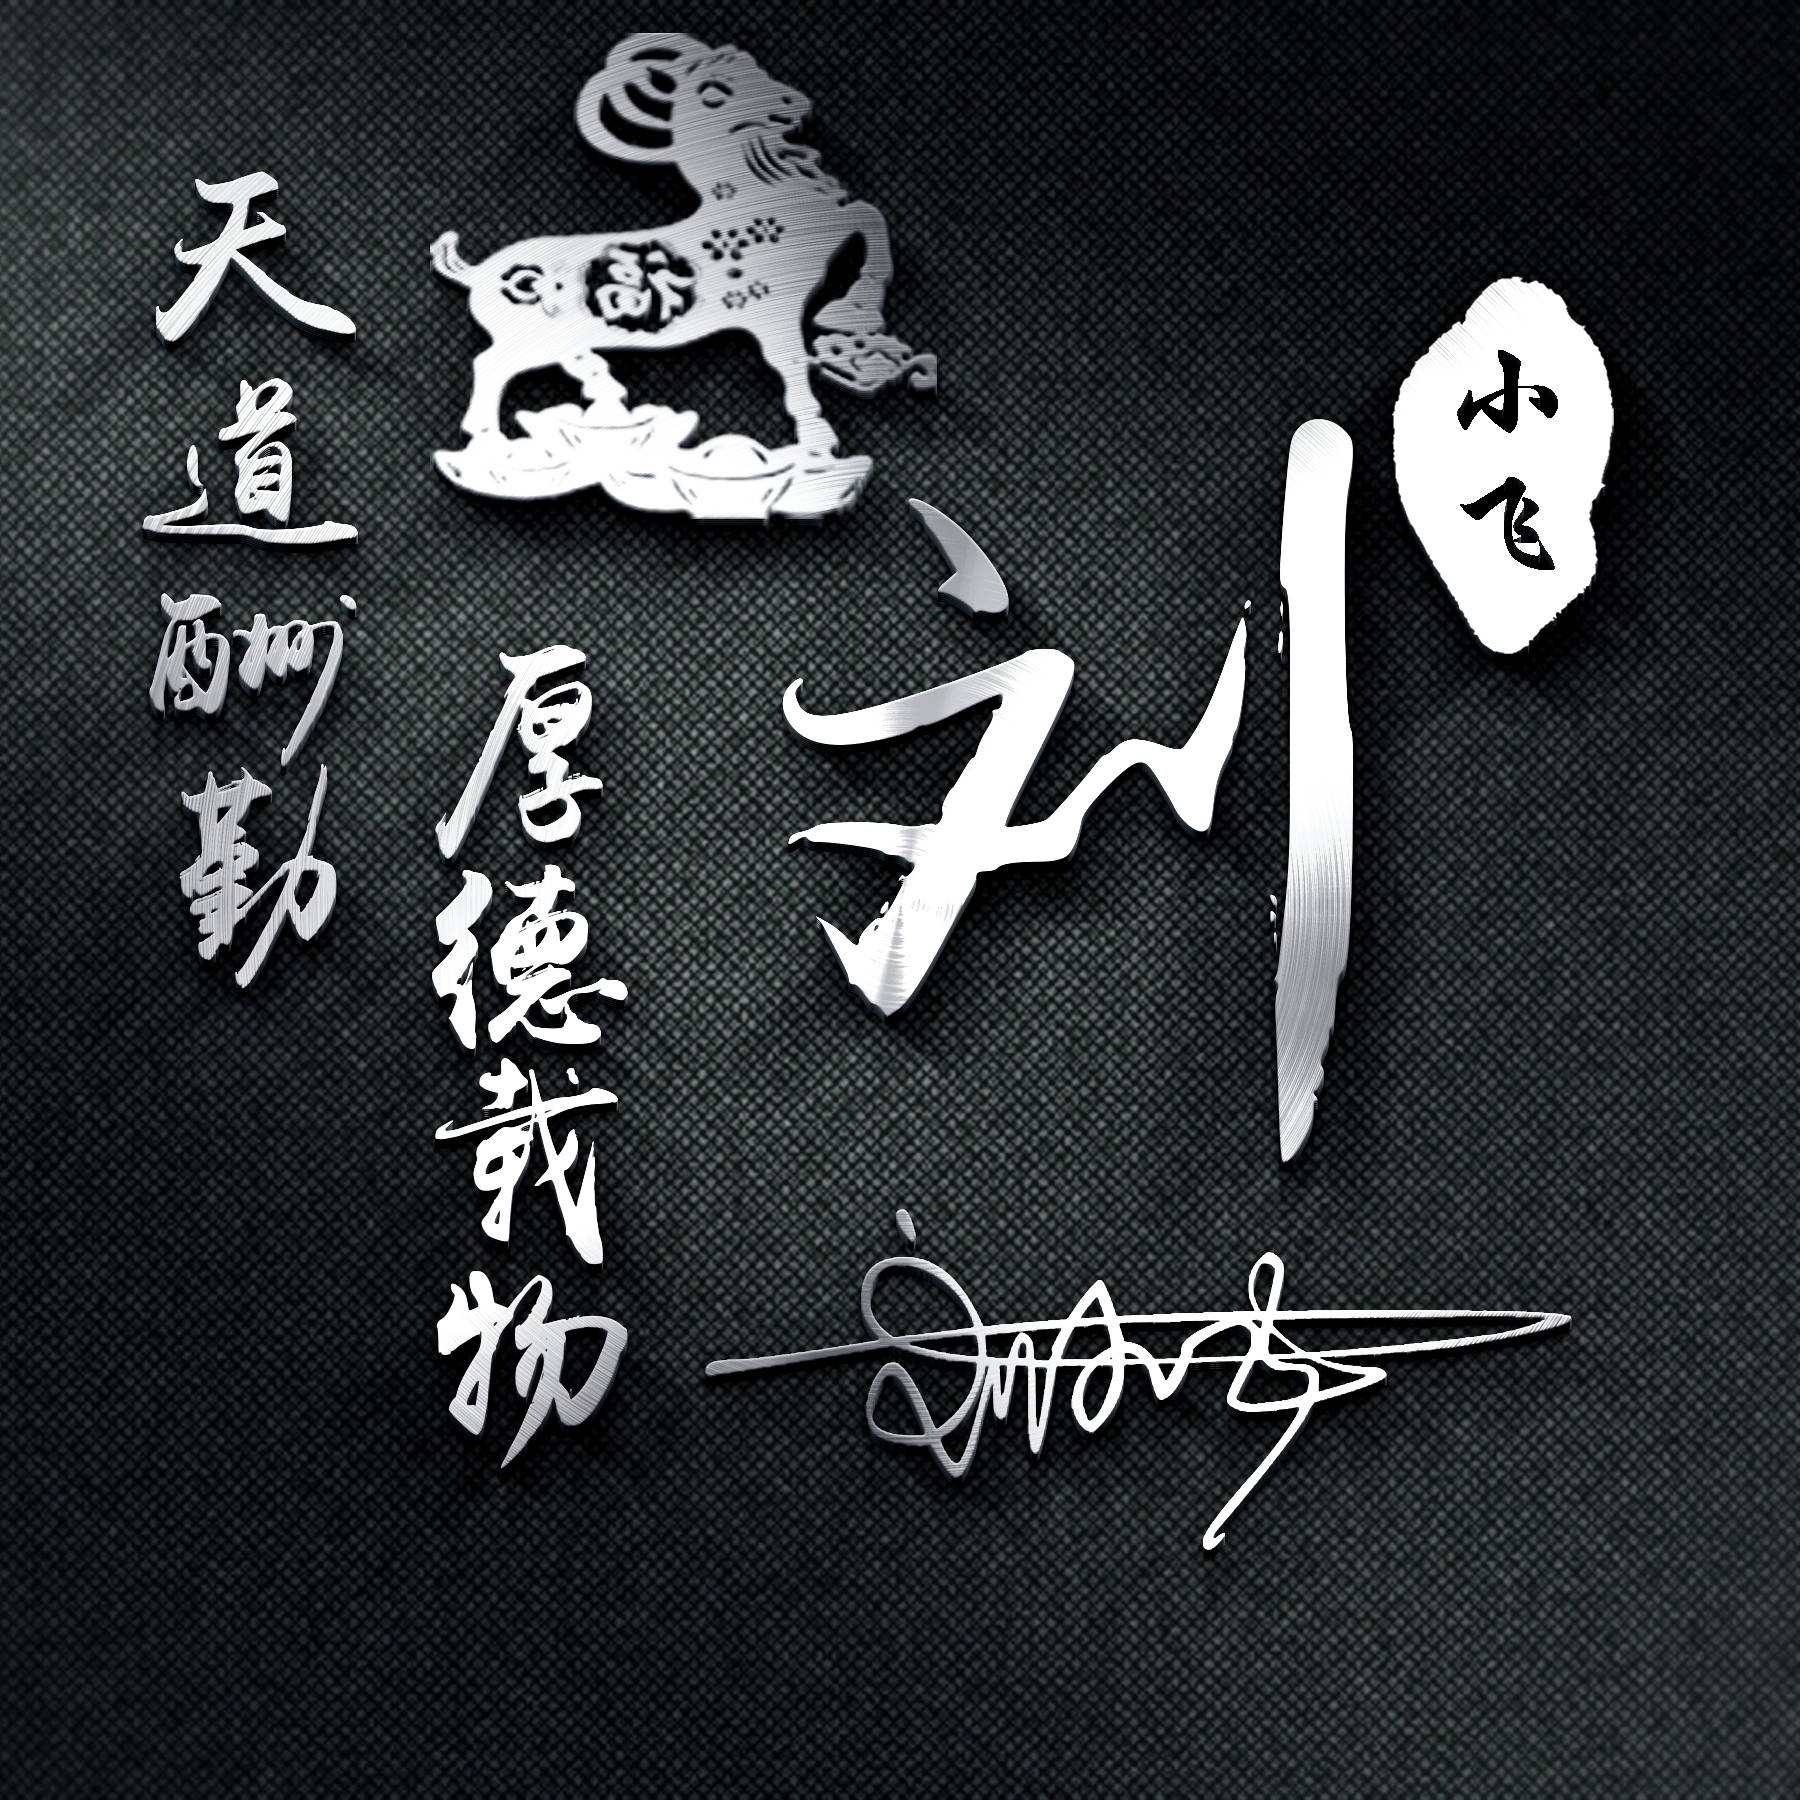 小飞
刘
福
厚德载物
天道酬勤